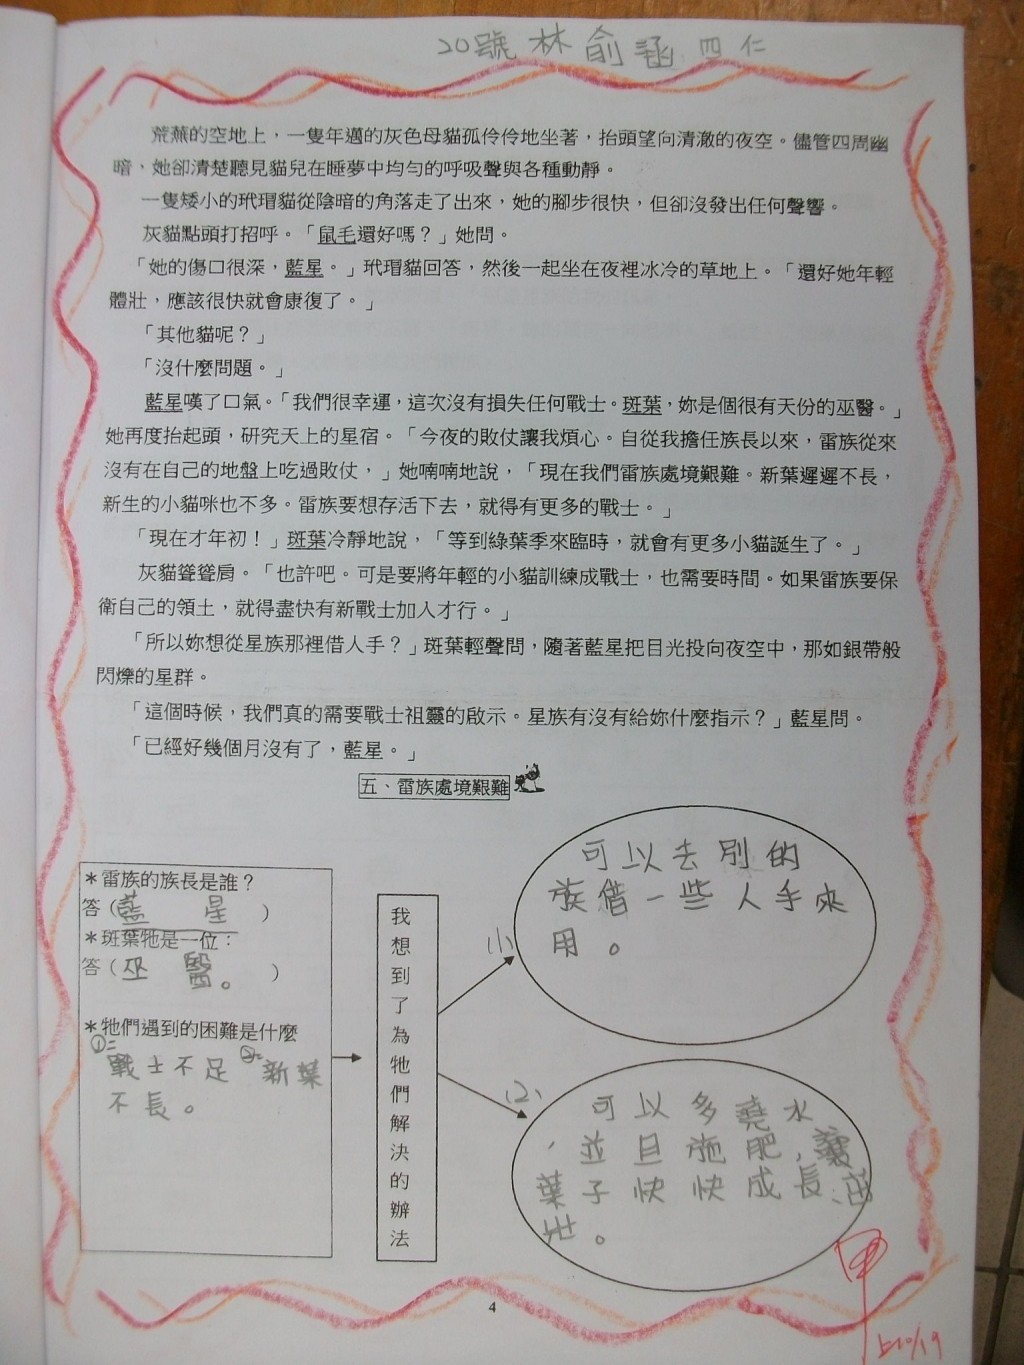 20號 林俞函 四仁
荒蕪的空地上，一隻年邁的灰色母貓孤伶伶地坐著，抬頭望向清澈的夜空。儘管四周幽
暗，她卻清楚聽見貓兒在睡夢中均勻的呼吸聲與各種動靜。
一隻矮小的玳瑁貓從陰暗的角落走了出來，她的腳步很快，但卻沒發出任何聲響。
灰貓點頭打招呼。「鼠毛還好嗎？」她問。
「她的傷口很深，藍星。」玳瑁貓回答，然後一起坐在夜裡冰冷的草地上。「還好她年輕
體壯，應該很快就會康復了。」
「其他貓呢？」
「沒什麼問題。」
藍星嘆了口氣。「我們很幸運，這次沒有損失任何戰士。斑葉，妳是個很有天份的巫醫。」
她再度抬起頭，研究天上的星宿。「今夜的敗仗讓我煩心。自從我擔任族長以來，雷族從來
沒有在自己的地盤上吃過敗仗，」她喃喃地說，「現在我們雷族處境艱難。新葉遲遲不長，
新生的小貓咪也不多。雷族要想存活下去，就得有更多的戰士。」
「現在才年初！」斑葉冷靜地說，「等到綠葉季來臨時，就會有更多小貓誕生了。」
灰貓聳聳肩。「也許吧。可是要將年輕的小貓訓練成戰士，也需要時間。如果雷族要保
衛自己的領土，就得盡快有新戰士加入才行。」
「所以妳想從星族那裡借人手？」斑葉輕聲問，隨著藍星把目光投向夜空中，那如銀帶般
閃爍的星群。
「這個時候，我們真的需要戰士祖靈的啟示。星族有沒有給妳什麼指示？」藍星問。
「已經好幾個月沒有了，藍星。」
五、雷族處境艱難
＊雷族的族長是誰？
答（藍 星）
＊斑葉牠是一位：
答（巫 醫。）
＊牠們遇到的困難是什麼
①：戰士不足 ②：新葉
不長。
我想到了為牠們解決的辦法
(1)
可以去別的
族借一些人手來
用。
(2)
可以多澆水
，並且施肥，讓
葉子快快成長、茁
壯。
甲
10/19
4